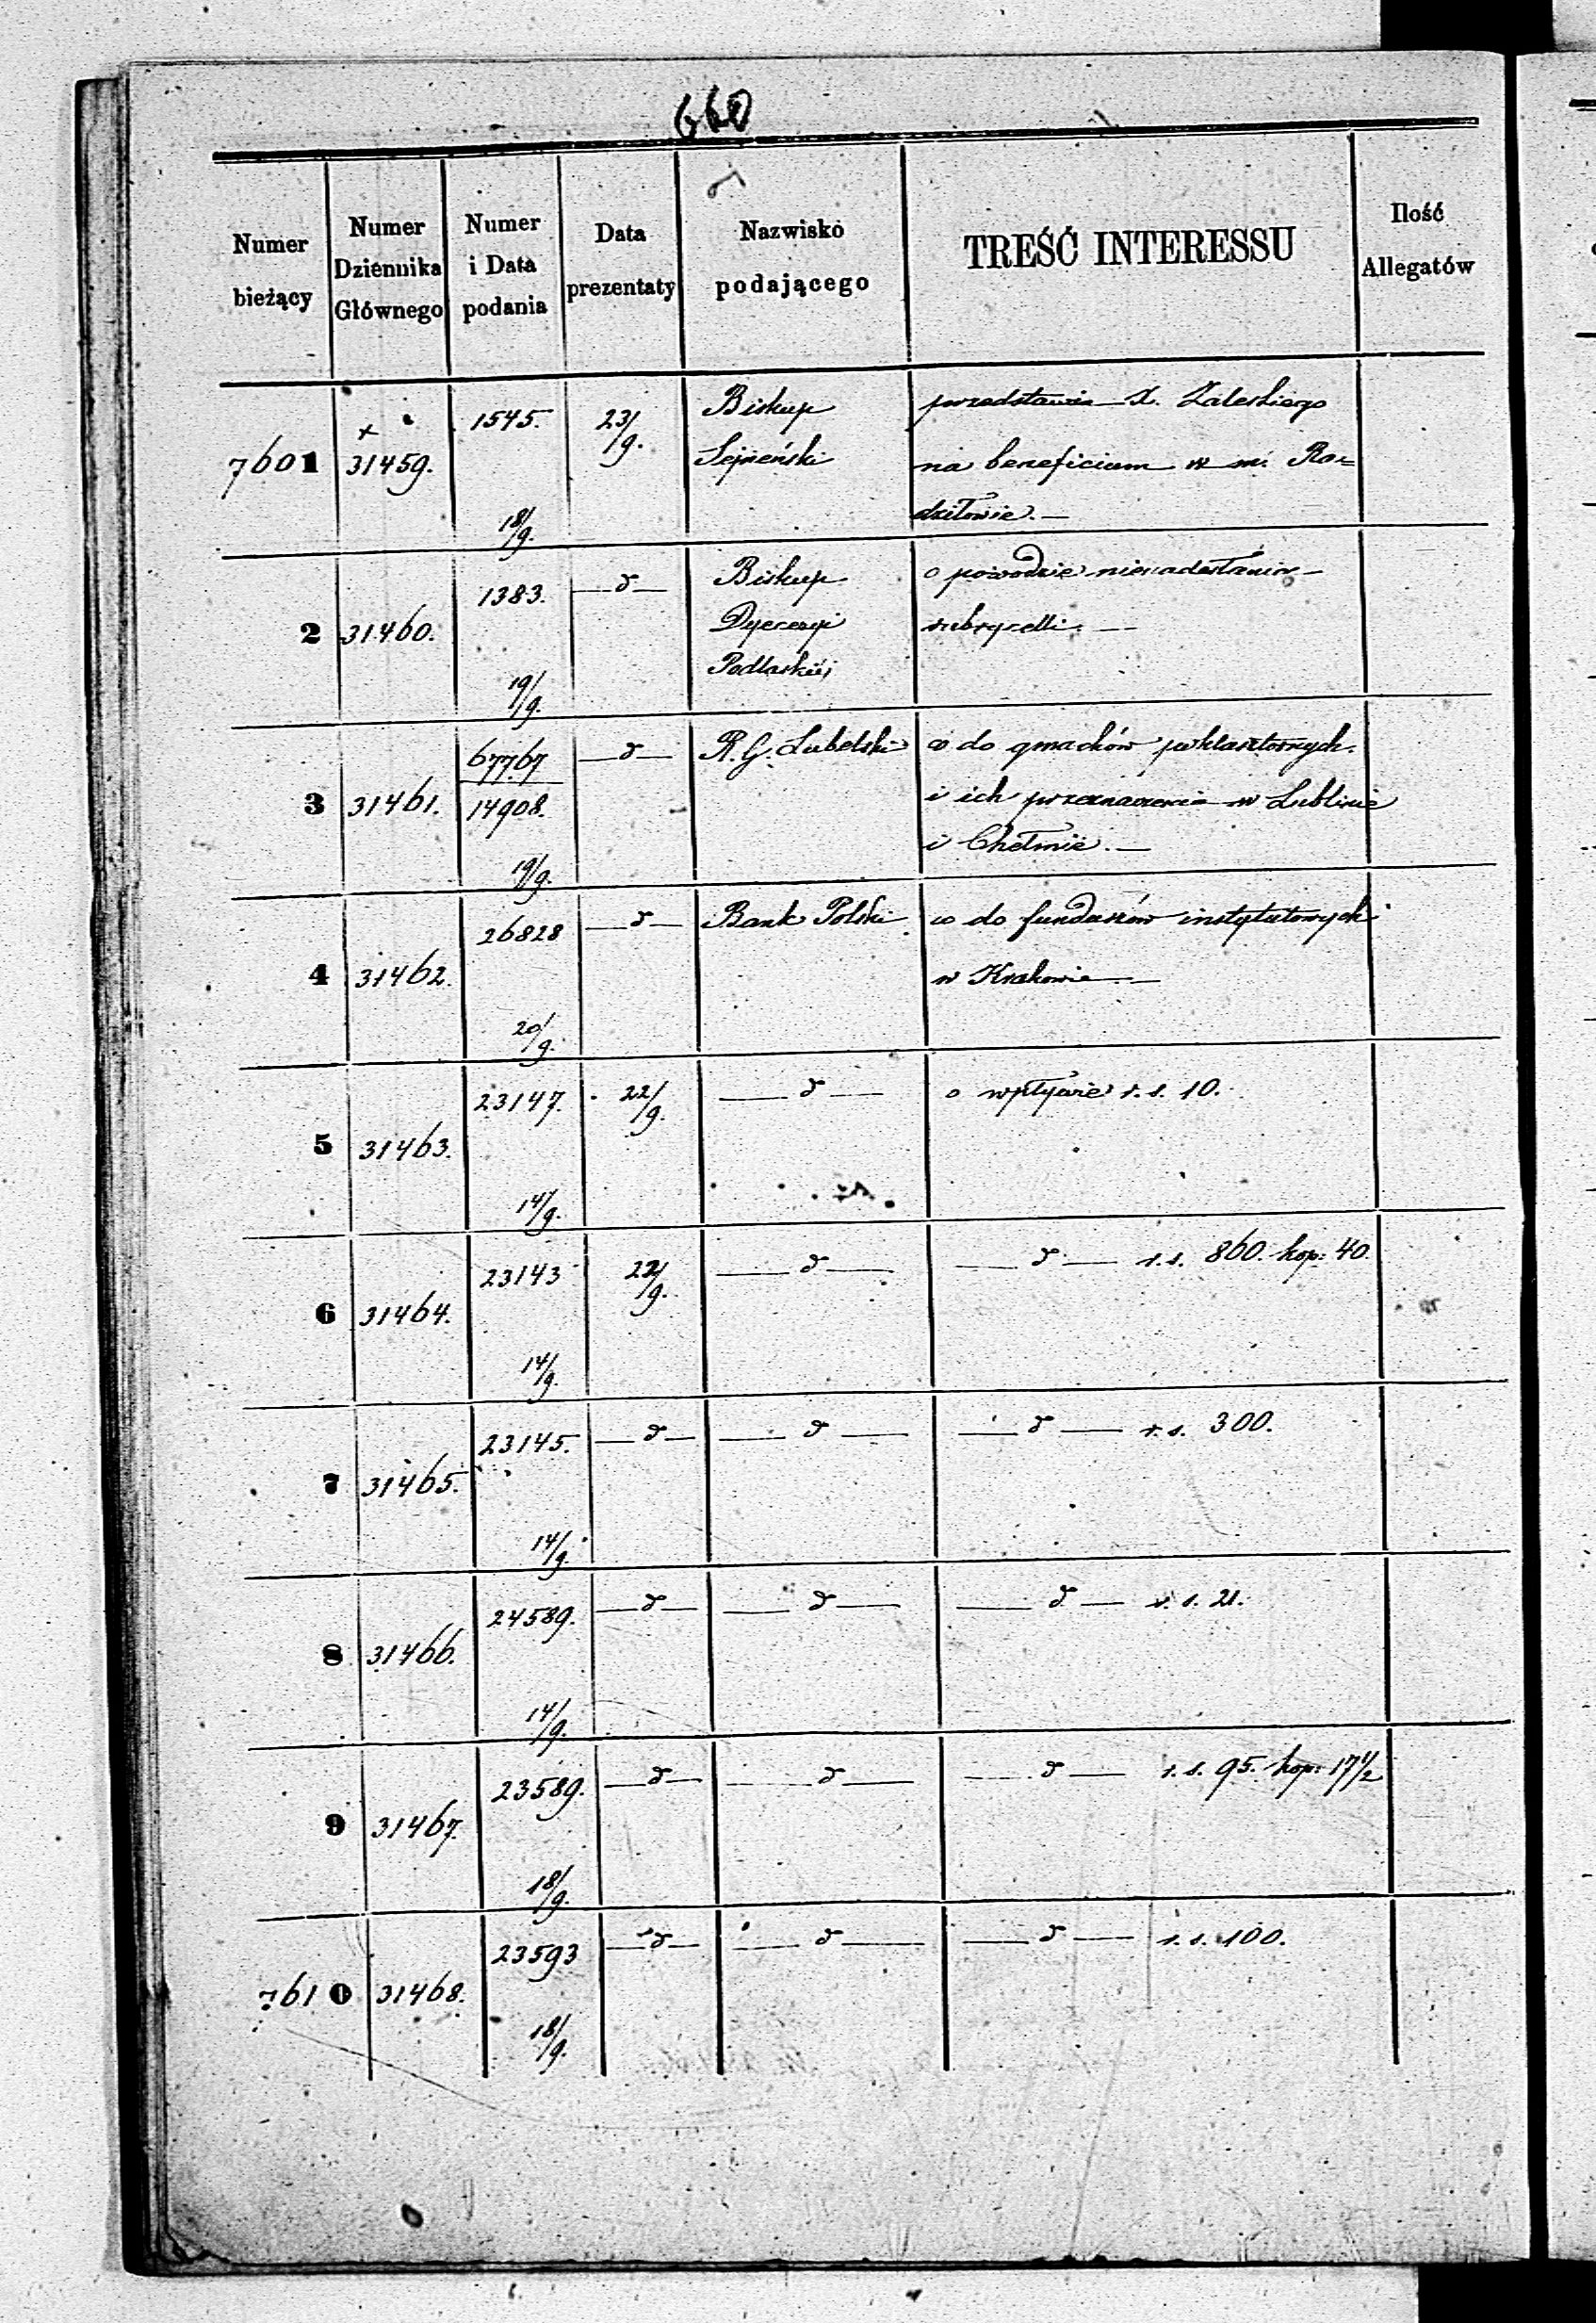 660
Numer bieżący
Numer Dziennika Głównego
Numer i Data podania
Data prezentaty
Nazwisko podającego
TREŚĆ INTERESSU
Ilość Allegatów
7601 + 31459. 1545. 18/9. 23/9. Biskup przedstawia X. Zaleskiego
Sejneński na beneficium w m. Ra=
dziłowie. —
2 31460. 1383. 19/9. — d — Biskup o powodzie nienadesłania
Dyecezyi rubrycelli. —
Podlaskiéj
3 31461. 67767 14908. 19/9. — d — R. G. Lubelski co do gmachów poklasztornych.
i ich przeznaczenia w Lublinie
i Chełmie. —
4 31462. 26828 20/9. — d — Bank Polski co do funduszów instytutowych
w Krakowie —
5 31463. 23147. 14/9. 22/9. — d — o wpływie r. s. 10.
6 31464. 23143 14/9. 22/9. — d — — d — r. s. 860. kop: 40
7 31465. 23145. 14/9. — d — — d — — d — r. s. 300.
8 31466. 24589. 14/9. — d — — d — — d — r. s. 21.
9 31467. 23589. 18/9. — d — — d — — d — r. s. 95. kop: 17 1/2
7610 31468. 23593 18/9. — d — — d — — d — r. s. 100.